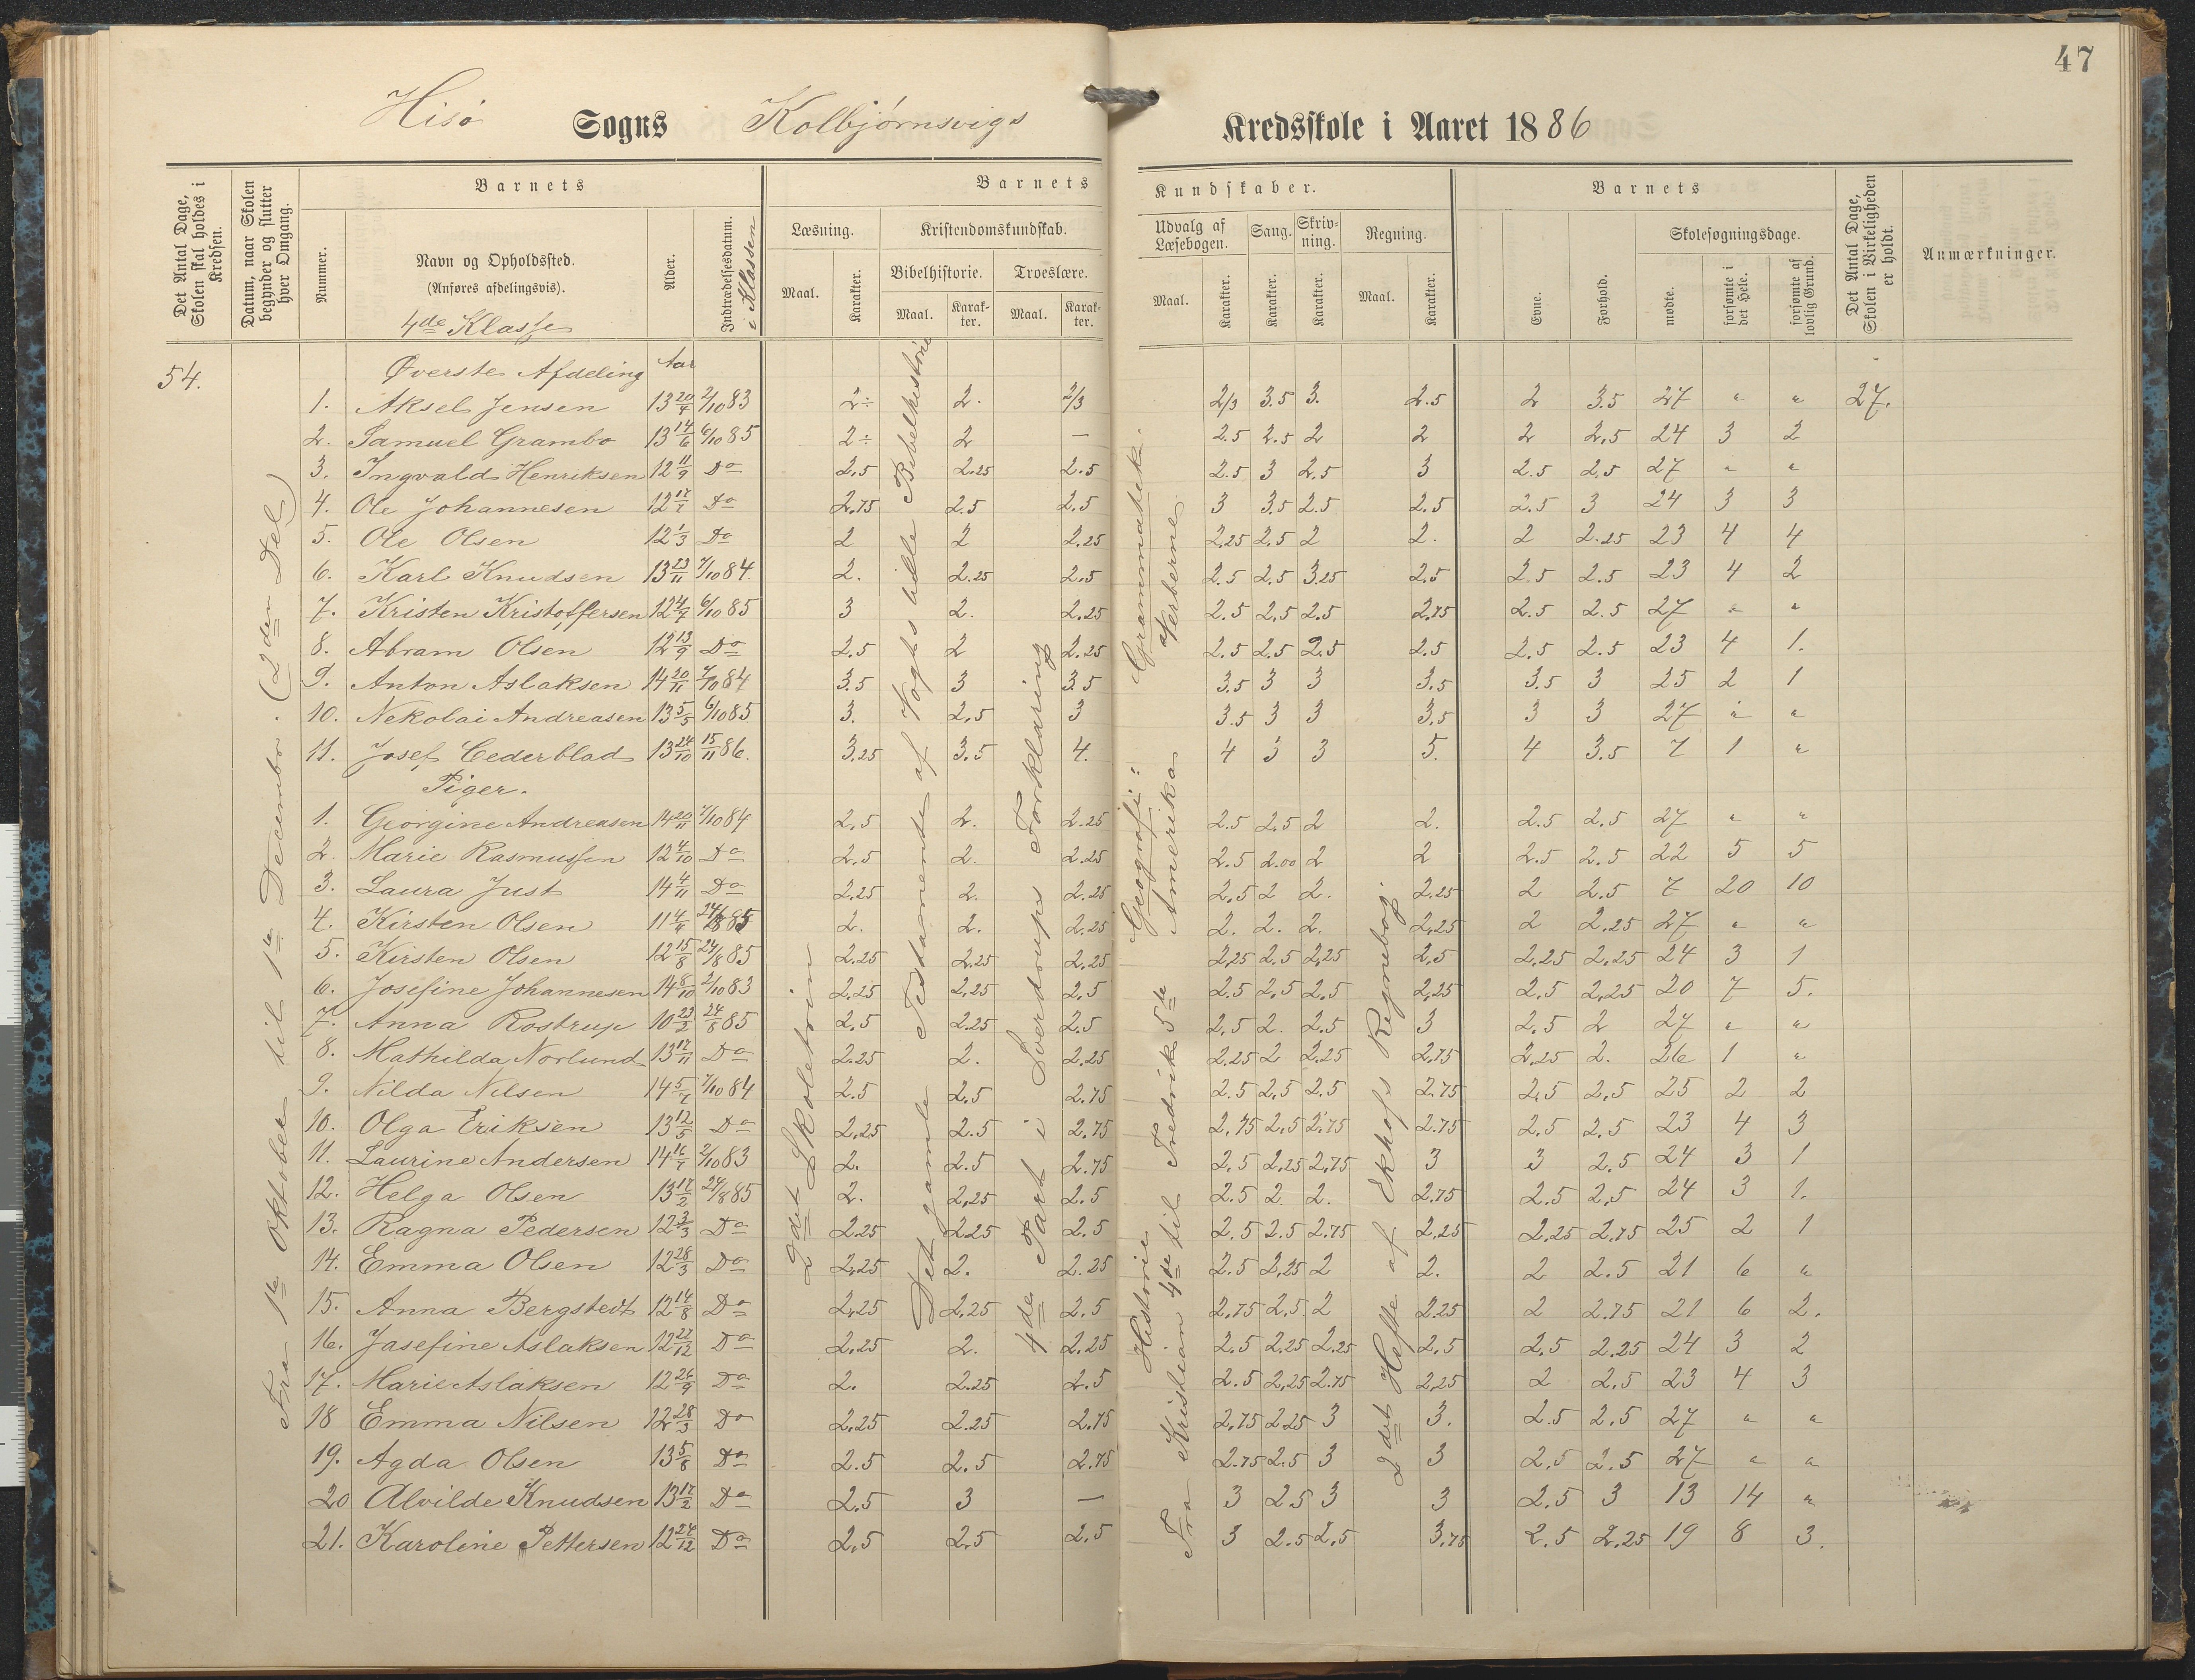 47
Hisø Sogns Kolbjørnsvigs Kredsskole i Aaret 1886
Det Antal Dage, Skolen skal holdes i Kredsen.
Datum, naar Skolen begynder og slutter hver Omgang.
Barnets
Nummer.
Navn og Opholdssted.
(Anføres afdelingsvis).
4de Klasse
Alder.
Indtrædelsesdatum. i Klassen
Barnets Kundskaber.
Læsning.
Maal.
Karakter.
Kristendomskundskab.
Bibelhistorie.
Maal.
Karakter.
Troeslære.
Maal.
Karakter.
Udvalg af Læsebogen.
Maal.
Karakter.
Sang.
Karakter.
Skrivning.
Karakter.
Regning.
Maal.
Karakter.
Barnets
Evne.
Forhold.
Skolesøgningsdage.
mødte.
forsømte i det Hele.
forsømte af lovlig Grund.
Det Antal Dage, Skolen i Virkeligheden er holdt.
Anmærkninger.
54.
Fra 1te Oktober til 1te December. (2den Del)
2det Skoletrin
Det gamle Testamente af Vogts lille Bibelhistorie
4de Part i Sverdrups Forklaring
Grammatik.
Verberne
Geografi:
Amerika
Historie
Fra Kristian 4de til Fredrik 5de
2det Hefte af Ekhofs Regnebog.
Øverste Afdeling Aar
1. Aksel Jensen 13 20/4 2/10 83 2÷ 2. 2/3 2/3 3.5 3. 2.5 2 3.5 27 " " 27.
2. Samuel Grambo 13 14/6 6/10 85 2÷ 2 — 2.5 2.5 2 2 2 2.5 24 3 2
3. Ingvald Henriksen 12 11/9 Do 2.5 2.25 2.5 2.5 3 2.5 3 2.5 2.5 27 " "
4. Ole Johannesen 12 Do 2.75 2.5 2.5 3 3.5 2.5 2.5 2.5 3 24 3 3
5. Ole Olsen 12 1/3 Do 2 2 2.25 2.25 2.5 2 2. 2 2.25 23 4 4
6. Karl Knudsen 13 23/11 7/10 84. 2. 2.25 2.5 2.5 2.5 3.25 2.5 2.5 2.5 23 4 2
7. Kristen Kristoffersen 12 4/7 6/10 85 3 2. 2.25 2.5 2.5 2.5 2.75 2.5 2.5 27 " "
8. Abram Olsen 12 13/9 Do 2.5 2 2.25 2.5 2.5 2.5 2.5 2.5 2.5 23 4 1.
9. Anton Aslaksen 14 20/11 7/10 84 3.5 3 3.5 3.5 3 3 3.5 3.5 3 25 2 1
10. Nekolai Andreasen 13 5/5 6/10 85 3. 2.5 3 3.5 3 3 3.5 3 3 27 " "
11. Josef Cederblad 13 24/10 15/11 86. 3.25 3.5 4. 4 3 3 5. 4 3.5 7 1 "
Piger.
1. Georgine Andreasen 14 20/11 7/10 84 2.5 2. 2.25 2.5 2.5 2 2. 2.5 2.5 27 " "
2. Marie Rasmussen 12 4/10 Do 2.5 2. 2.25 2.5 2.00 2 2 2.5 2.5 22 5 5
3. Laura Just 14 4/11 Do 2.25 2. 2.25 2.5 2 2. 2.25 2 2.5 7 20 10
4. Kirsten Olsen 11 4/4 24/8 85 2. 2. 2.25 2. 2. 2. 2.25 2 2.25 27 " "
5. Kirsten Olsen 12 15/8 24/8 85 2.25 2.25 2.25 2.25 2.5 2.25 2.5 2.25 2.25 24 3 1
6. Josefine Johannesen 14 8/10 2/10 83 2.25 2.25 2.5 2.5 2.5 2.5 2.25 2.5 2.25 20 7 5.
7. Anna Rostrup 10 23/2 24/8 85 2.5 2.25 2.5 2.5 2. 2.5 3 2.5 2 27 " "
8. Mathilda Norlund 13 17/11 Do 2.25 2. 2.25 2.25 2 2.25 2.75 2.25 2. 26 1 "
9. Nilda Nilsen 14 7/10 84 2.5 2.5 2.75 2.5 2.5 2.5 2.75 2.5 2.5 25 2 2
10. Olga Eriksen 13 12/5 Do 2.25 2.5 2.75 2.75 2.5 2.75 2.75 2.5 2.5 23 4 3
11. Laurine Andersen 14 2/10 83 2. 2.5 2.75 2.5 2.25 2.75 3 3 2.5 24 3 1
12. Helga Olsen 13 17/2 24/8 85 2. 2.25 2.5 2.5 2. 2. 2.75 2.5 2.5 24 3 1.
13. Ragna Pedersen 12 3/3 Do 2.25 2.25 2.5 2.5 2.5 2.75 2.25 2.25 2.75 25 2 1
14. Emma Olsen 12 28/3 Do 2.25 2. 2.25 2.5 2.25 2 2. 2 2.5 21 6 "
15. Anna Bergstedt 12 14/8 Do 2.25 2.25 2.5 2.75 2.5. 2 2.25 2 2.75 21 6 2.
16. Jasefine Aslaksen 12 22/12 Do 2.25 2. 2.25 2.5 2.25 2.25 2.5 2.5 2.25 24 3 2
17. Marie Aslaksen 12 26/9 Do 2. 2.25 2.5 2.5 2.25 2.75 2.25 2 2.5 23 4 3
18 Emma Nilsen 12 28/3 Do 2.25 2.25 2.75 2.75 2.25 3 3. 2.5 2.5 27 " "
19. Agda Olsen 13 5/8 Do 2.5 2.5 2.75 2.75 2.5 3 3 2.5 2.5 27 " "
20 Alvilde Knudsen 13 17/2 Do 2.5 3 — 3 2.5 3 3 2.5 3 13 14 "
21. Karoline Pettersen 12 24/12 Do 2.5 2.5 2.5 3 2.5 2.5 3.75 2.5 2.25 19 8 3.